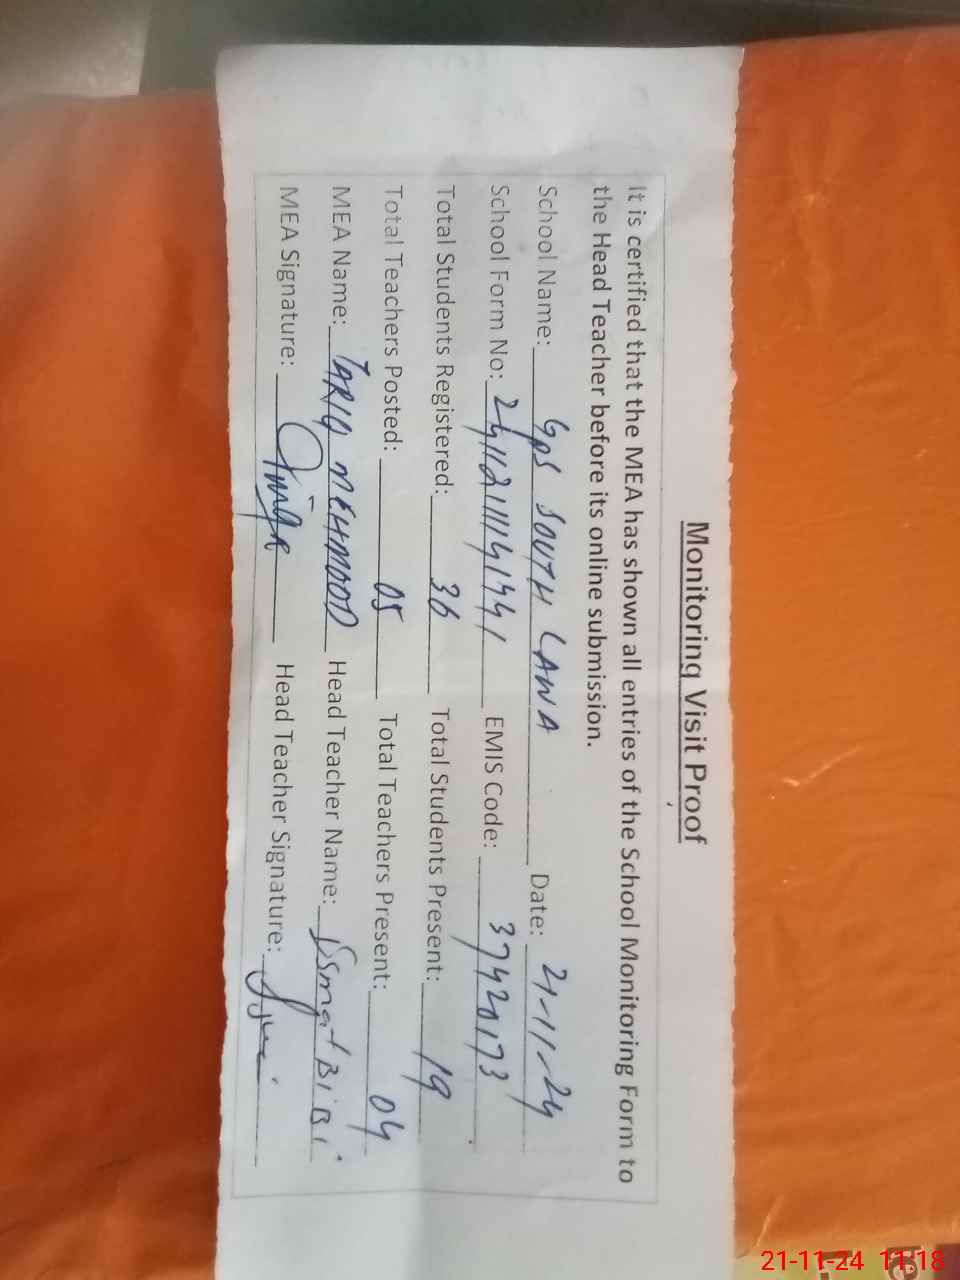 Monitoring Visit Proof
It is certified that the MEA has shown all entries of the School Monitoring Form to
the Head Teacher before its online submission.
School Name: GPS SOUTH LAWA Date: 21-11-24
School Form No: EMIS Code: 37420173
Total Students Registered: 36 Total Students Present: 19
Total Teachers Posted: 05 Total Teachers Present: 04
MEA Name: TARIQ MEHMOOD Head Teacher Name: Ismat BiBi
MEA Signature: Head Teacher Signature:
21-11-24 11:18